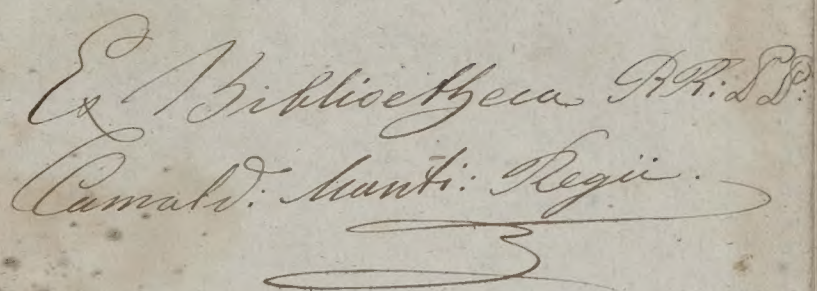 Ex Biblioetheca RR: PP:
Camald: Monti: Regii.